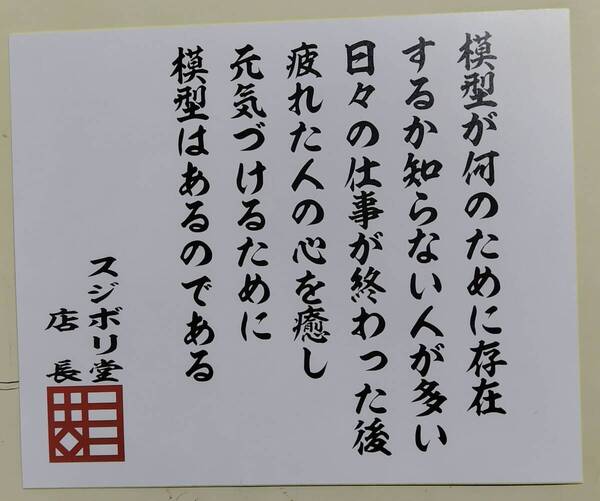 模型が何のために存在
するか知らない人が多い
日々の仕事が終わった後
疲れた人の心を癒し
元気づけるために
模型はあるのである
スジボリ堂
店長